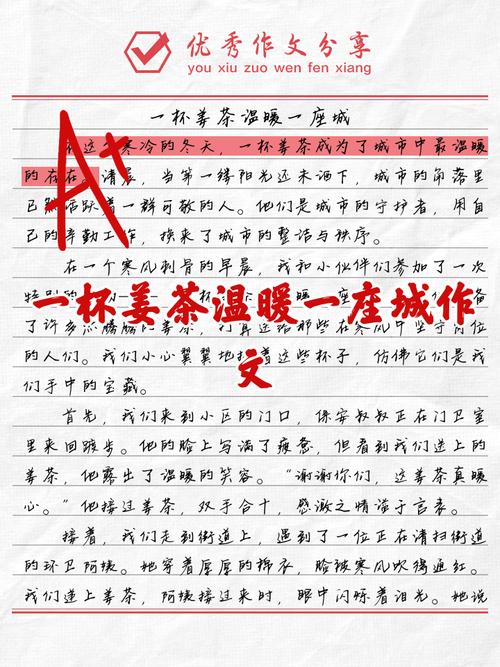 优秀作文分享
you xiu zuo wen fen xiang
一杯姜茶温暖一座城
A+
这个寒冷的冬天，一杯姜茶成为了城市中最温暖
的存在。清晨，当第一缕阳光还未洒下，城市的角落里
已 活跃着一群可敬的人。他们是城市的守护者，用自
己的辛勤工作，换来了城市的整洁与秩序。
在一个寒风刺骨的早晨，我和小伙伴们参加了一次
特别的
一杯姜茶温暖一座城作
文
了许多 姜茶，打算送给那些在寒风中坚守岗位
的人们。我们小心翼翼地 着这些杯子，仿佛它们是我
们手中的宝藏。
首先，我们来到小区的门口，保安叔叔正在门卫室
里来回踱步。他的脸上写满了疲惫，但看到我们递上的
姜茶，他露出了温暖的笑容。“谢谢你们，这姜茶真暖
心。”他接过姜茶，双手合十，感激之情溢于言表。
接着，我们走到街道上，遇到了一位正在清扫街道
的环卫阿姨。她穿着厚厚的棉衣，脸被寒风吹得通红。
我们递上姜茶，阿姨接过来时，眼中闪烁着泪光。她说